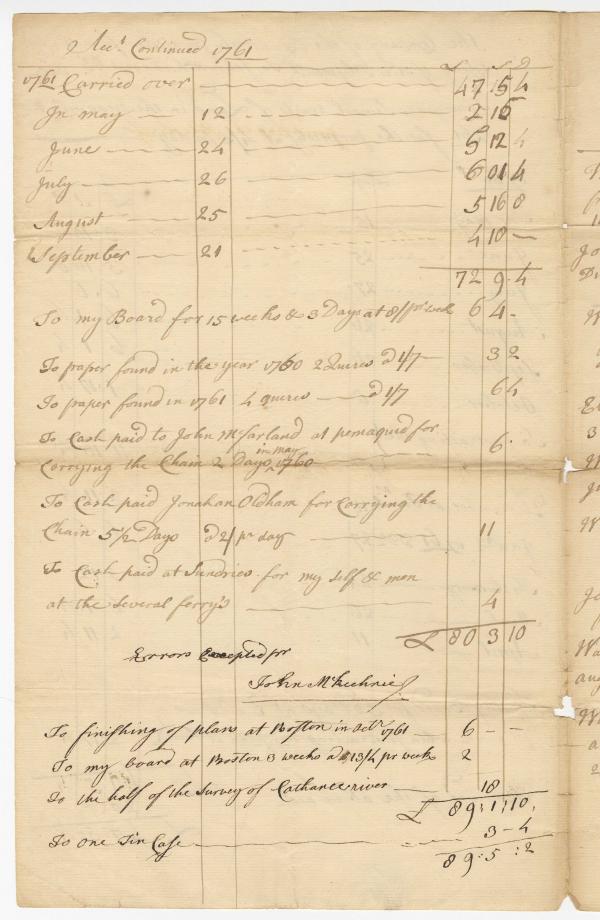 Acct Continued 1761
£ S D
1761 Carried over 47 :5 4
In may 12 2 16
June 24 5 12 4
July 26 6 01 4
August 25 5 16 8
September 21 4 18 —
72 9 . 4
To my Board for 15 weeks & 3 Days at 8/ pr week 6 4 -
To paper found in the year 1760 2 Quires @ 1/7 3 2
To paper found in 1761 4 quires @ 1/7 6 4
To Cash paid to John McFarland at pemaquid for
in may
Carrying the Chain 2 Days 1760 6 .
To Cash paid Jonahan Oldham for Carrying the
Chain 5 1/2 Days @ 2/ pr day 11
To Cash paid at Sundries for my self & men
at the several ferry's 4
£ 80 3 10
Errors Excepted pr
John McKechnie
To finishing of plans at Boston in Octr 1761 6 - -
To my board at Boston 3 weeks @ 13/4 pr week 2
To the half of the Survey of Cathance river 18
£ 89 : 1 : 10
To one Tin Case 3 - 4
89 : 5 : 2